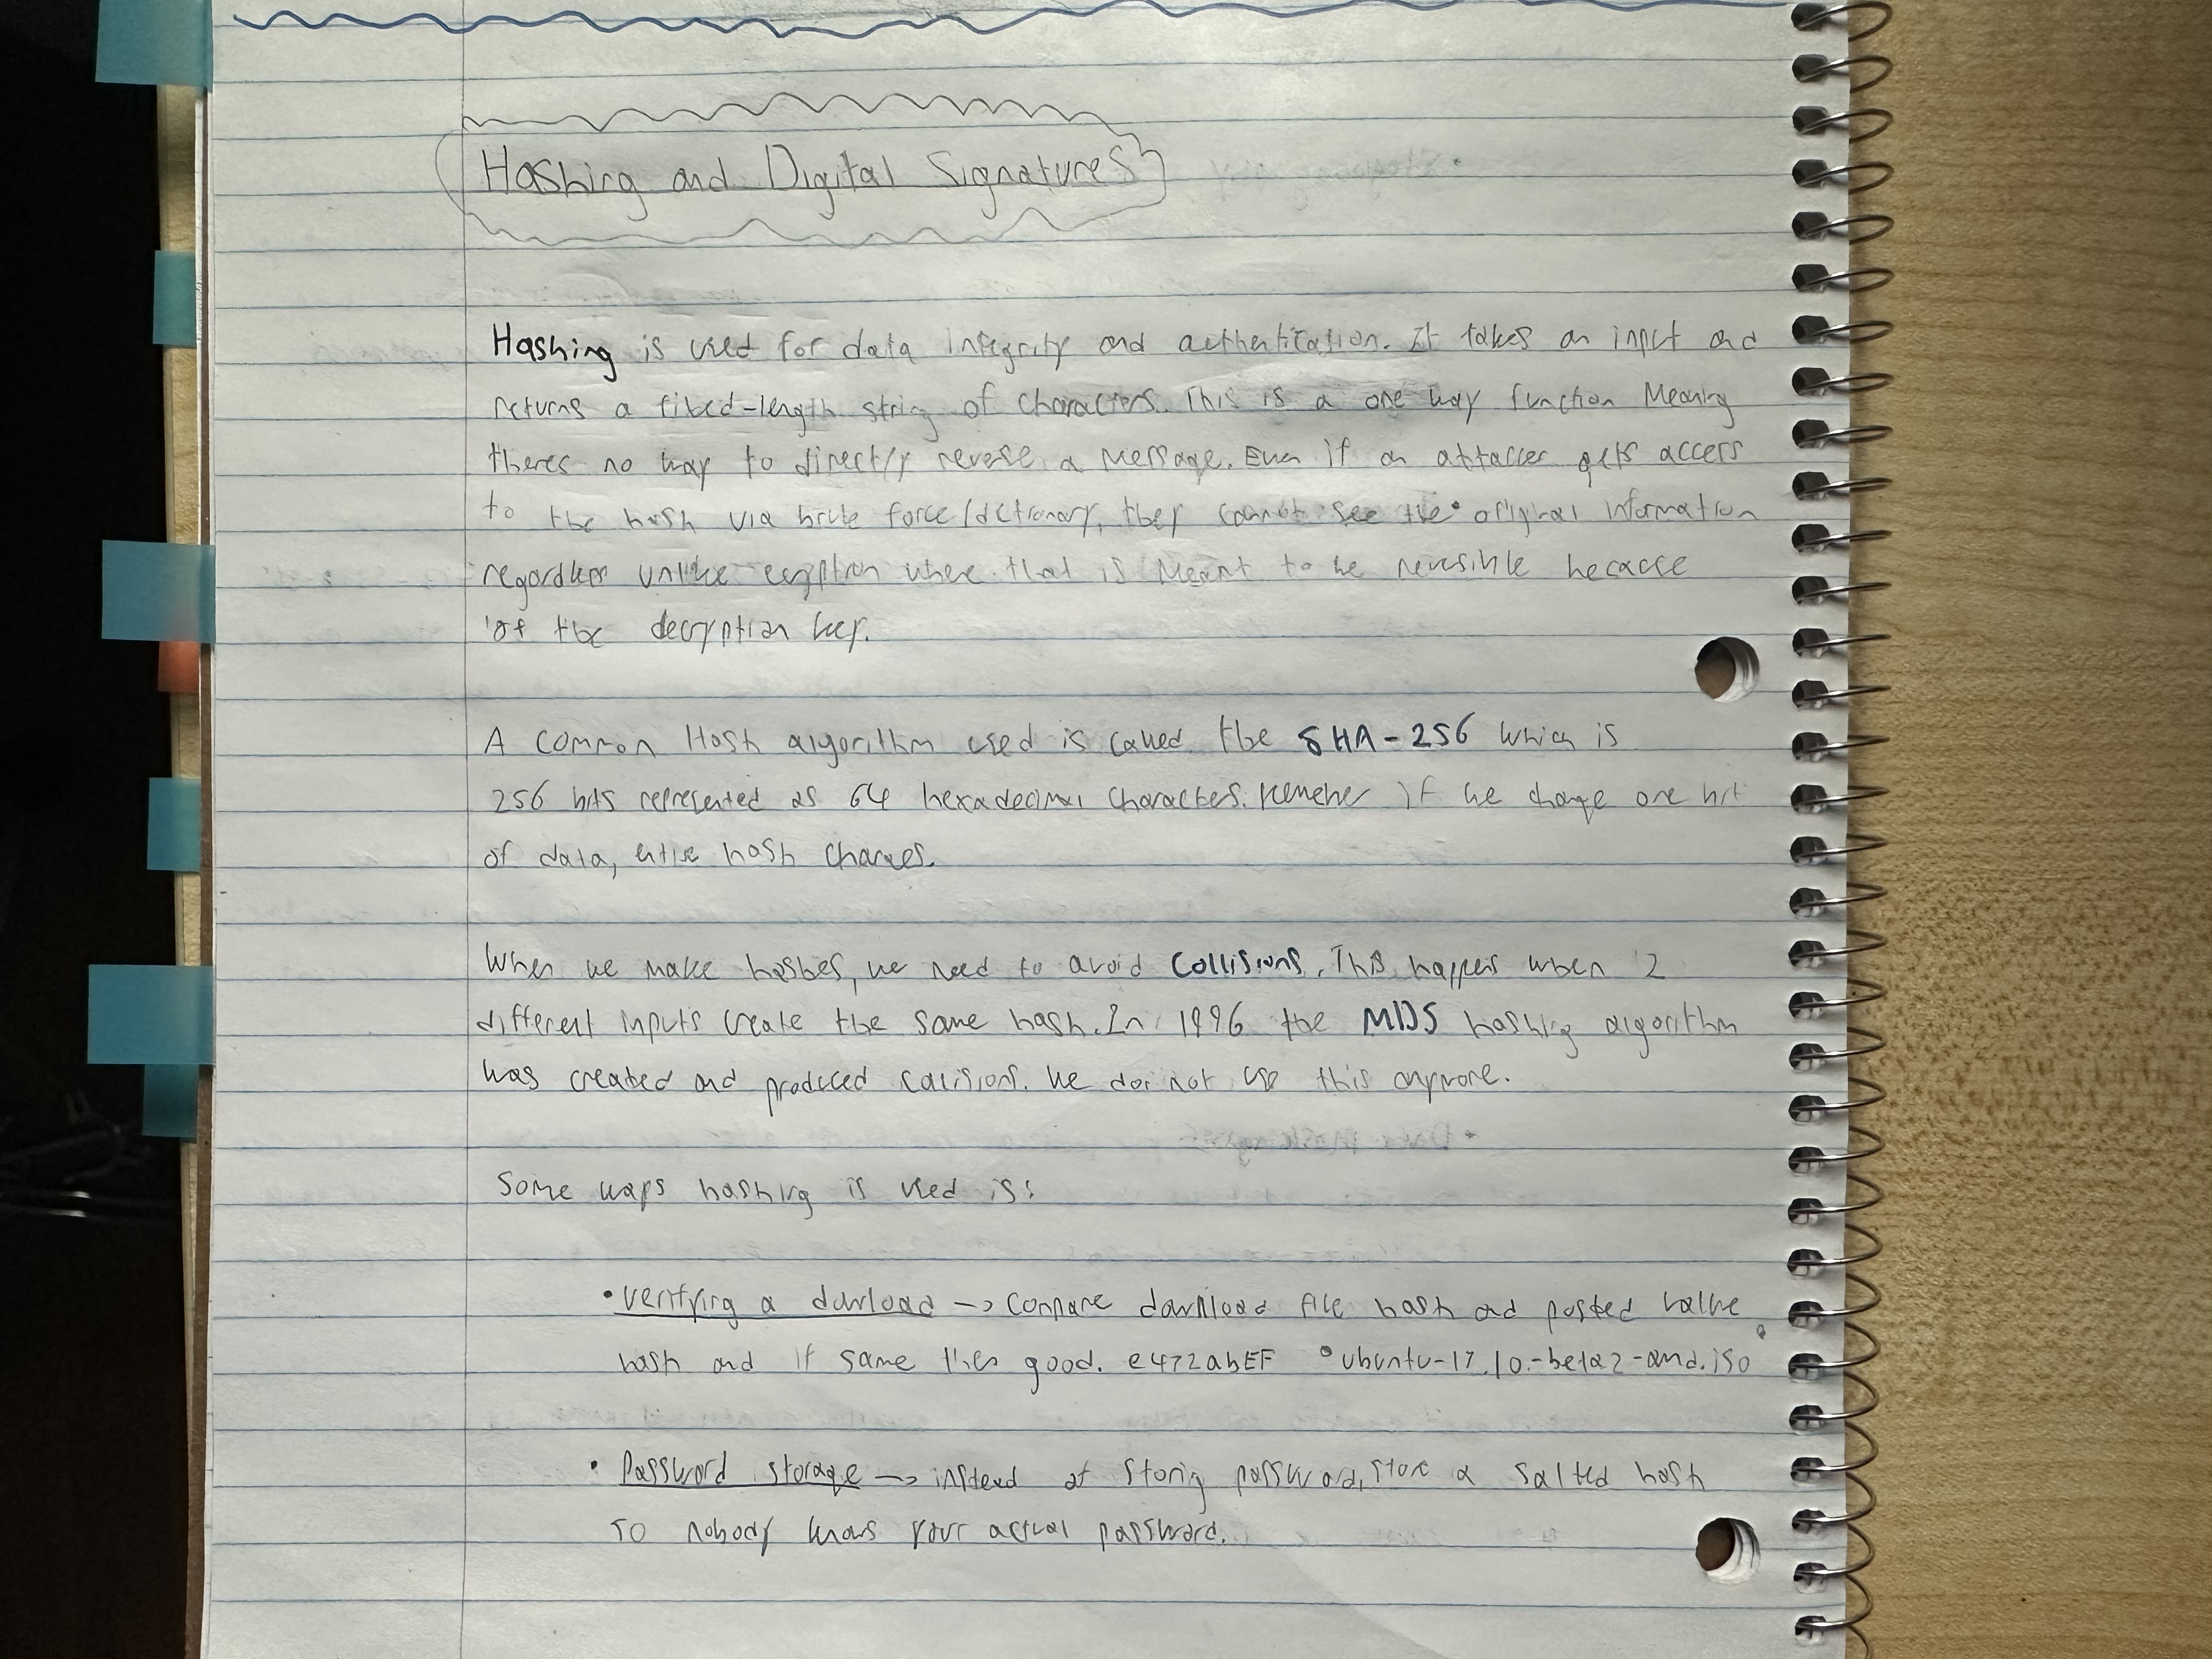 Hashing and Digital Signatures
Hashing is used for data integrity and authentication. It takes an input and
returns a fixed-length string of characters. This is a one way function Meaning
theres no way to directly reverse a message. Even if an attacker gets access
to the hash via brute force/dictionary, they cannot see the original information
regardless unlike ecryption where that is meant to be reversible because
of the decryption key.
A common Hash algorithm used is called the SHA-256 which is
256 bits represented as 64 hexadecimal characters. Remeber if we change one bit
of data, entire hash changes.
When we make hashes, we need to avoid Collisions. This happens when 2
different inputs create the same hash. In 1996 the MD5 hashing algorithm
was created and produced collisions. We do not use this anymore.
Some ways hashing is used is:
• Verifying a download -> Compare download file hash and posted value
hash and if same then good. e472abEF • ubuntu-17.10.-beta2-amd.iso
• Password storage -> instead of storing password, store a salted hash
so nobody knows your actual password.